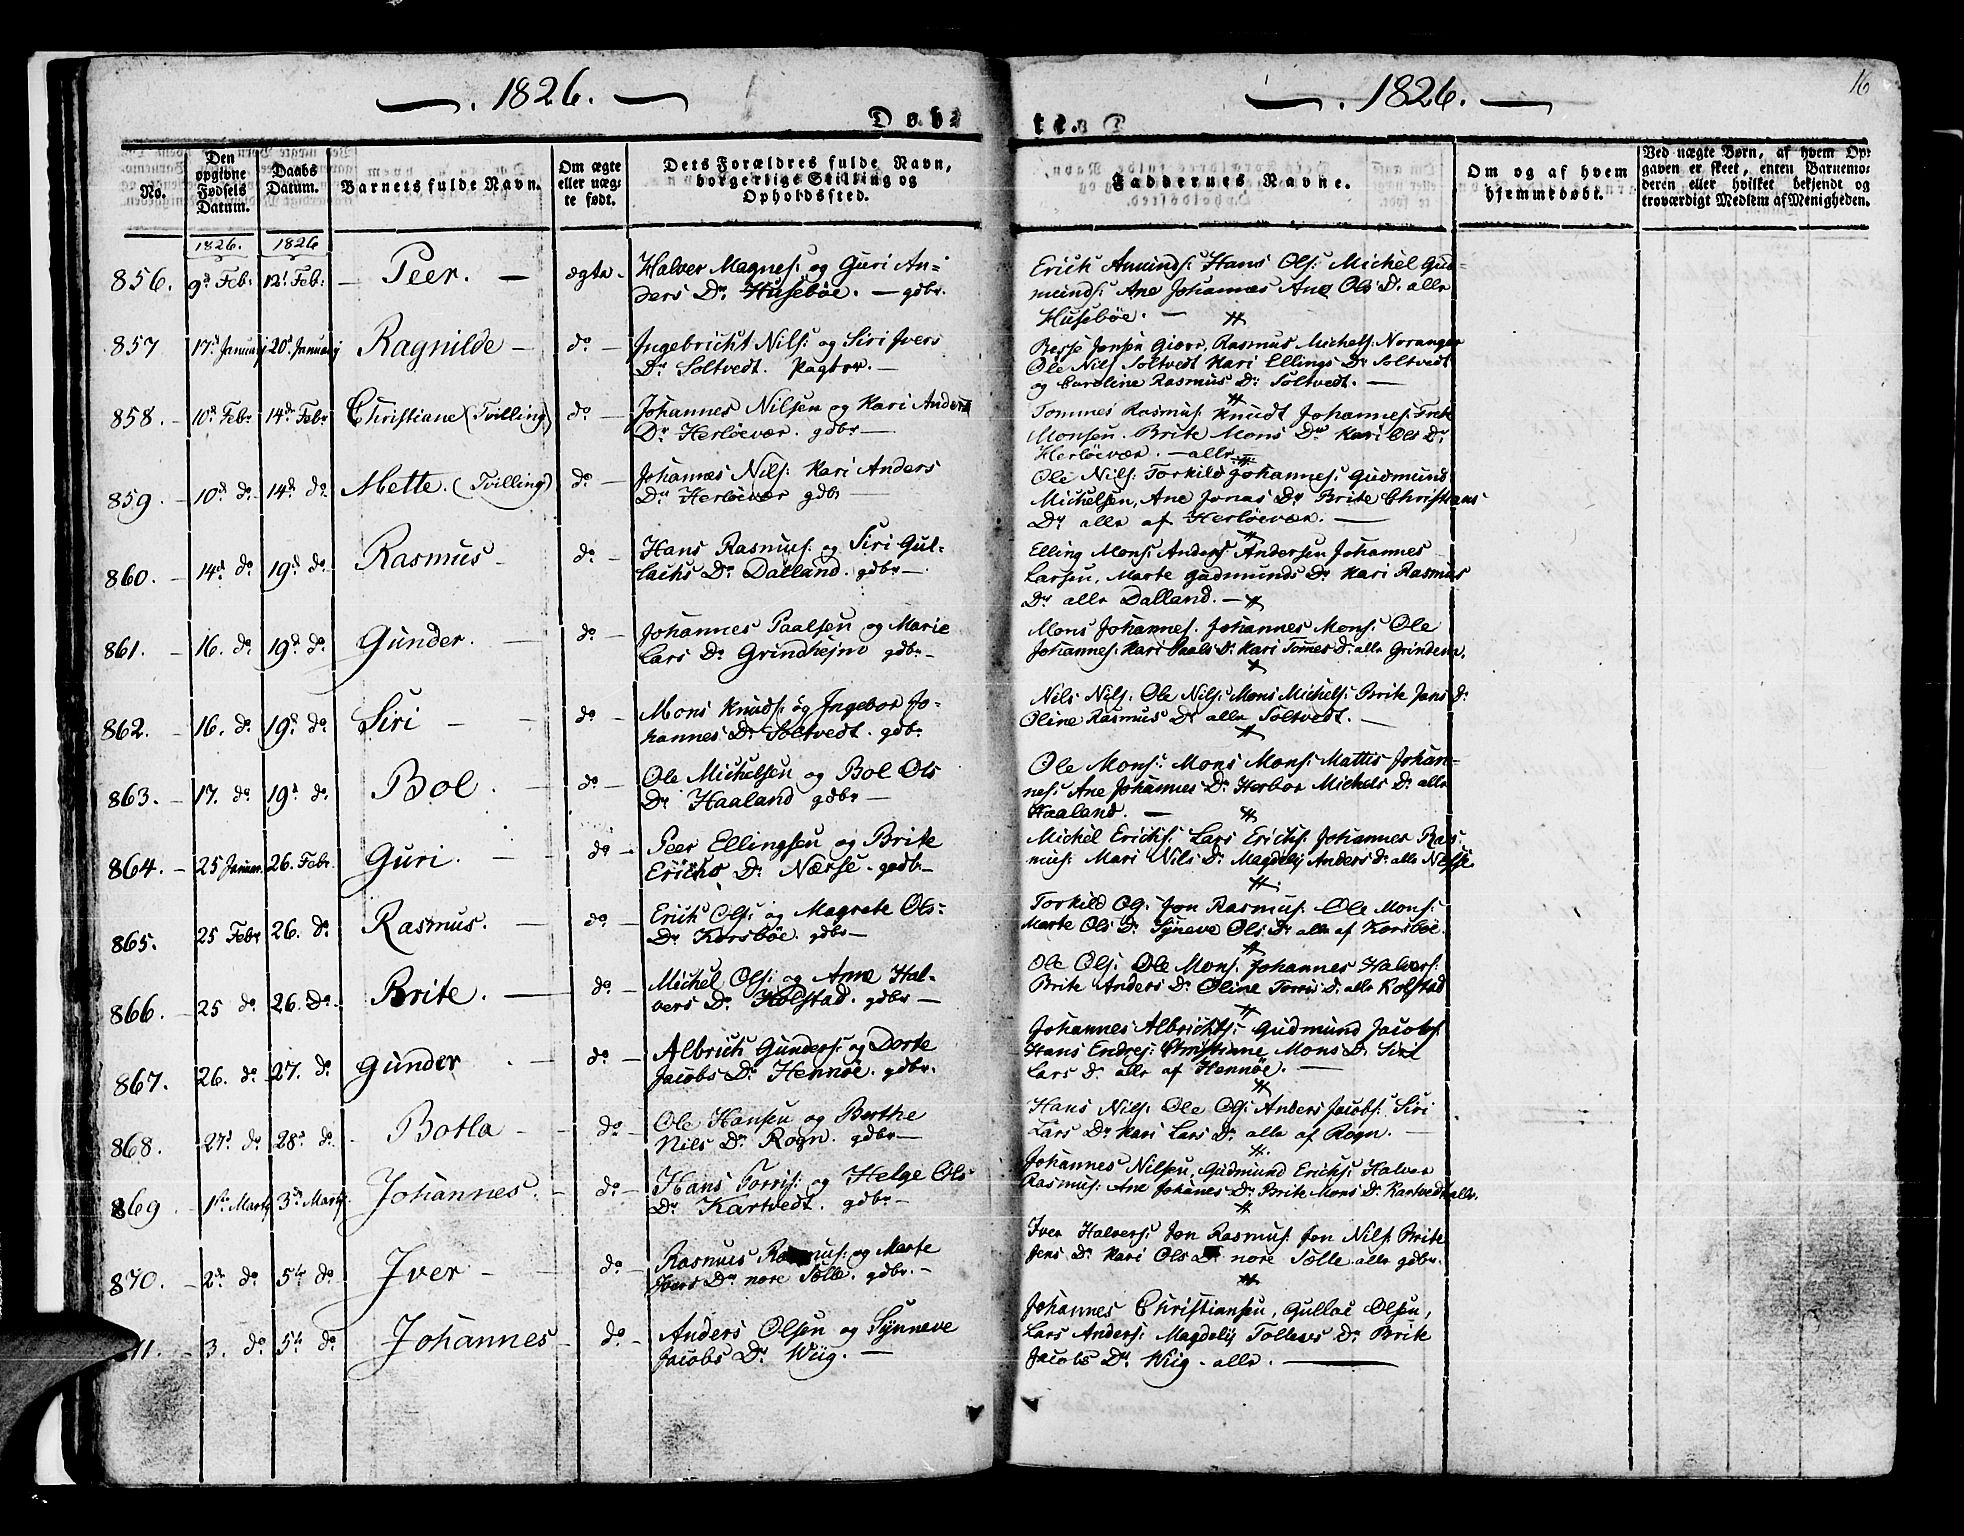 1826.
Døbte.
No.
Den opgivne Fødsels Datum.
Daabs Datum.
Barnets fulde Navn.
Om ægte eller uægte født.
Dets Forældres fulde Navn, borgerlige Stilling og Opholdssted.
1826. 1826
856. 9d Feb: 12t Feb: Peer. ægta Halver Magnes: og Guri An-
ders Dr Husebøe. gdbr.
857 17d January 20d January Ragnilde do Ingebricht Nils: og Siri Ivers
Dr Soltvedt.
858. 10d Febr 14de Febr Christiane (Tvilling) do Johannes Nilsen og Kari Anders
Dr Herløevær. gdbr
859. 10d do 14d do Mette. (Tvilling) do Johannes Nils: Kari Anders
Dr Herløevær gdbr
860. 14d do 19d do Rasmus do Hans Rasmus: og Siri Gul-
lachs Dr Dalland. gdbr
861. 16. do 19d do Gunder. do Johannes Paalsen og Marie
Lars Dr Grindhejm gdbr
862. 16. do 19d do Siri do Mons Knuds: og Ingebor Jo-
hannes Dr Soltvedt. gdbr
863. 17. do 19d do Bol. do Ole Michelsen og Bol Ols
Dr Haaland gdbr
864. 25 Januar. 26. Febr. Guri. do Peer Ellingsen og Brite
Erichs Dr Nærse. gdbr
865. 25 Febr 26. do Rasmus. do Erich Ols: og Magrete Ols:
Dr Korsbøe. gdbr
866. 25 do 26. Do. Brite. do Michel Ols: og Anne Hal-
vers Dr Kolstad. gdbr
867. 26. do 27. do Gunder do Albrich Gunders: og Dorte
Jacobs Dr Hennøe. gdbr.
868. 27d do 28d do Botla do Ole Hansen og Berthe
Nils Dr Rogn. gdbr
869 1ste Marty 3de Marty. Johannes. do Hans Torris: og Helge Ols
Dr Kartvedt. gdbr
870. 2de do 5te do Iver do Rasmus Rasmus: og Marte
Ivers Dr nore Tolle. gdbr.
3. do 5te do Johannes do Anders Olsen og Synneve
Jacobs Dr Wiig.
1826.
16
Faddernes Navne.
Om og af hvem hjemmedøbt.
Ved uægte Børn, af hvem Opgaven er skeet, enten Barnemoderen eller hvilket bekjendt og troværdigt Medlem af Menigheden.
Erich Amunds: Hans Ols: Michel Gud-
munds: Ane Johannes Ane Ols Dr alle
Husebøe.
Jensen Rasmus Michels: Noranger
Ole Nils Soltvedt Kari Ellings Dr Soltvedt
og Caroline Rasmus Dr Soltvedt.
Tommes Rasmus: Knudt Johannes:
Monsen. Brite Mons Dr Kari Ols Dr
Herløevær. alle
Ole Nils: Torkild Johannes: Gudmund
Michelsen, Ane Jonas Dr Brite Christians
Dr alle af Herløevær.
Elling Mons: Anders Andersen Johannes
Larsen, Marte Gudmunds Dr Kari Rasmus
Dr alle Dalland.
Mons Johannes. Johannes Mons: Ole
Johannes: Kari Paals Dr Kari Tomes Dr alle Grindem.
Nils Nils: Ole Nils: Mons Michels: Brite Jens Dr
Oline Rasmus Dr alle Soltvedt.
Ole Mons: Mons Mons: Mattis Johan-
nes: Ane Johannes Dr Herbor Michels Dr alle
Haaland.
Michel Erichs: Lars Erichs: Johannes Ras-
mus: Mari Nils Dr Magdely Anders Dr alle
Torkild Ols: Jon Rasmus: Ole Mons:
Marte Ols Dr Synneve Ols Dr alle af Korsbøe.
Ole Ols: Ole Mons: Johannes Halvers:
Brite Anders Dr Oline Torris Dr alle Kolstad
Johannes Albrichts: Gudmund Jacobs:
Hans Endres: Christiane Mons Dr Siri
Lars Dr alle af Hennøe.
Hans Nils: Ole Ols: Anders Jacobs: Siri
Lars Dr Kari Lars Dr alle af Rogn.
Johannes Nilsen, Gudmund Erichs: Halver
Rasmus: Ane Johanes Dr Brite Mons Dr Kartvedt alle.
Iver Halvers: Jon Rasmus: Jon Nils: Brite
Jens Dr Kari Ols Dr nore Tolle alle gdbr.
Johannes Christiansen, Gulloe Olsen,
Lars Anders: Magdely Tolleves Dr Brite
Jacobs Dr Wiig. alle.